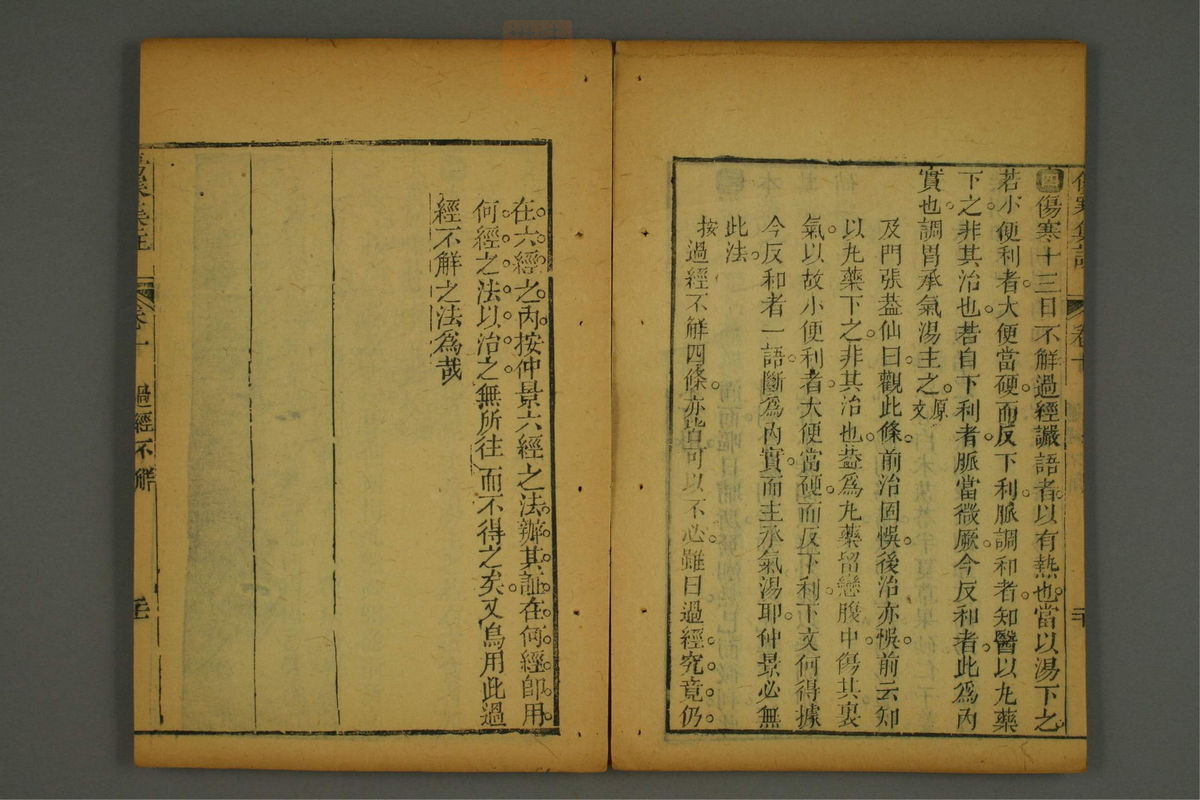 傷寒集註
卷十
二十
四傷寒十三日不解過經讝語者以有熱也當以湯下之
若小便利者大便當硬而反下利脈調和者知醫以丸藥
下之非其治也若自下利者脈當微厥今反和者此爲內
實也調胃承氣湯主之原文
及門張葢仙曰觀此條前治固悞後治亦悞前云知
以丸藥下之非其治也葢爲丸藥留戀腹中傷其裏
氣以故小便利者大便當硬而反下利下文何得據
今反和者一語斷爲內實而主承氣湯耶仲景必無
此法
按過經不解四條亦皆可以不必雖曰過經究竟仍
在六經之內按仲景六經之法辦其証在何經卽用
何經之法以治之無所往而不得之矣又烏用此過
經不解之法爲哉
卷十
過經不解